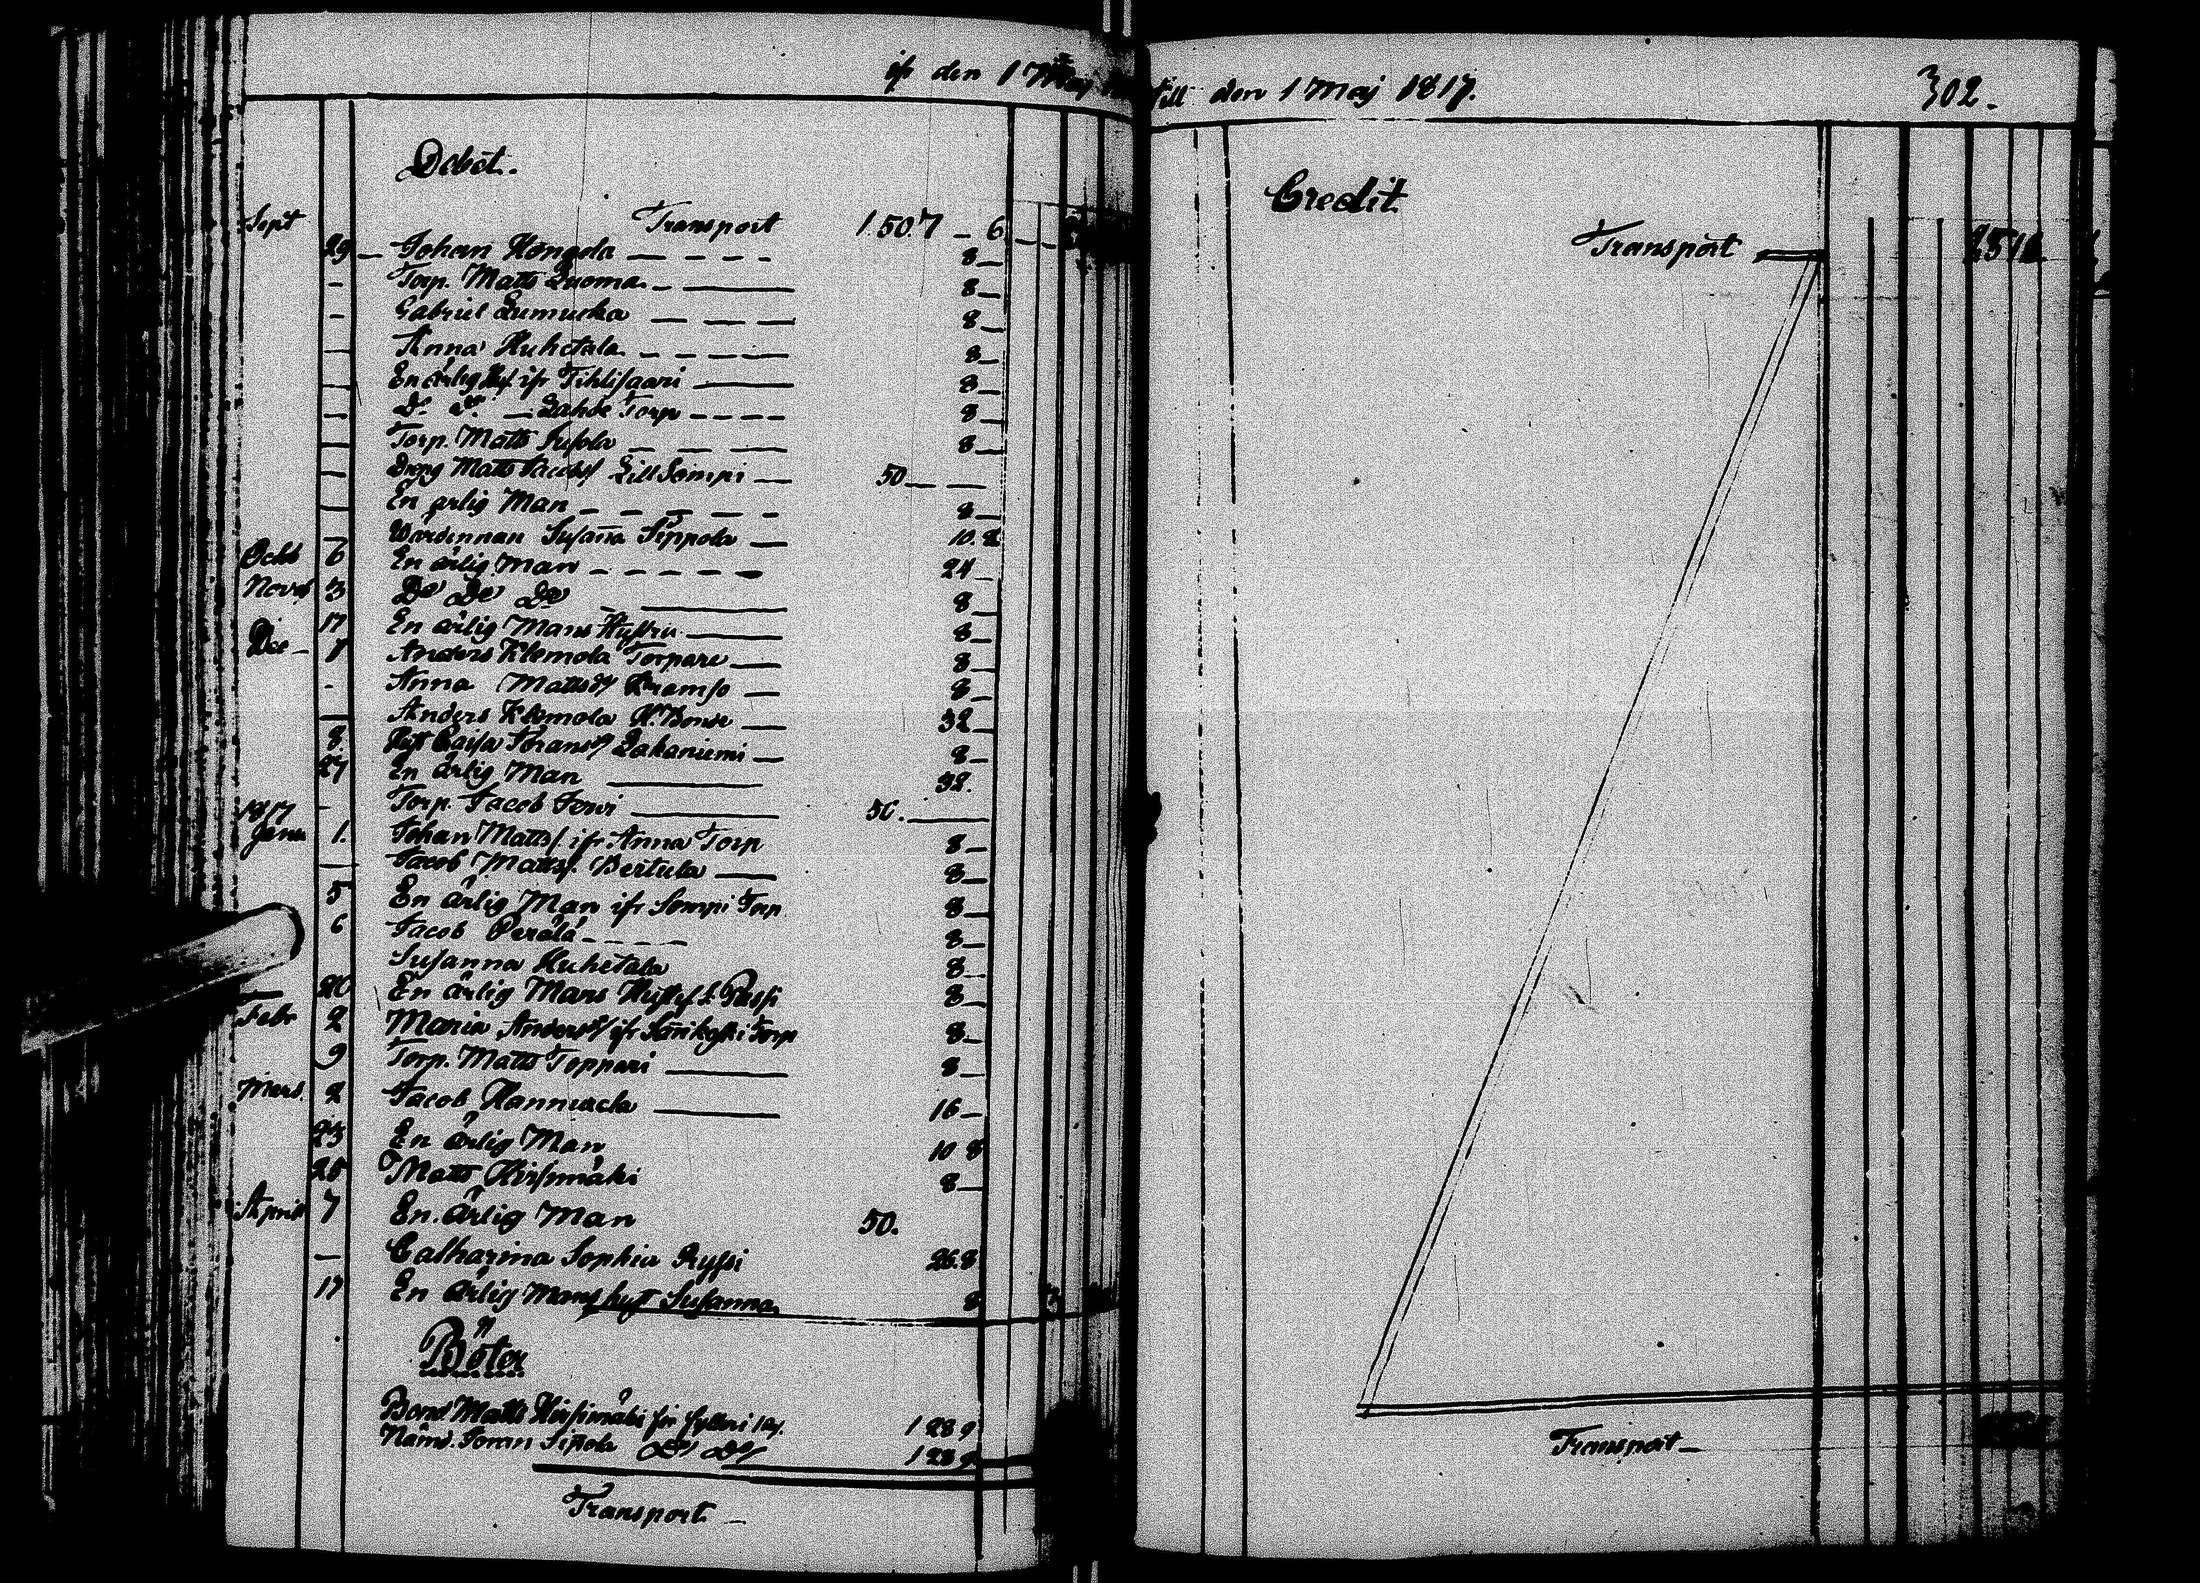 ifr den 1 Maj
Debet.
Sept Transport 1.507 - 6
29 - Johan Hongola 8 -
- Torp. Matts Luoma 8 -
- Gabriel Lumucka 8 -
- Anna Huhetala 8 -
- En ärlig ifr Tihlisaari 8 -
- Do Do Lahde Torp 8 -
- Torp. Matts Susola 8 -
- Dreng Matts Jacobss Lill Sompi 50 - -
- En ärlig Man 8 -
- Värdinnan Susaña Sippola 10.8
Octb 6 En ärlig Man 24 -
Novr 3 Do Do Do 8 -
17 En ärlig Mans Hustru 8 -
Dec - 7 Anders Klemola Torpare 8 -
- Anna Mattsdr Kramso 8 -
- Anders Klemola 32 -
8 Hust Caisa Lakaniemi 8 -
27 En ärlig Man 32.
1817 - Torp. Jacob Jervi 50. -
Janu 1. Johan Mattss. ifr Anna Torp 8 -
- Jacob Mattss. Bertula 8 -
5 En ärlig Man ifr Sompi Torp 8 -
6 Jacob Perälä 8 -
Susanna Huhetala 8 -
20 En ärlig Mans Passi 8 -
Febr 2 Maria Andersdr ifr Torp 8 -
9 Torp. Matts Toppari 8 -
Mars. 2 Jacob Hannuela 16 -
23 En ärlig Man 10 8
25 Matts Hirsimäki 8 -
April 7 En ärlig Man 50.
- Catharina Sophia Ryssi 26.8
17 En ärlig Mans hust Susanna 8
Böter
Bond Matts Hirsimäki för fylleri 1 28 9
Näms. Joran Sipola Do Do 1 28 9
Transport -
till den 1 Maj 1817.
302.
Credit
Transport
Transport -